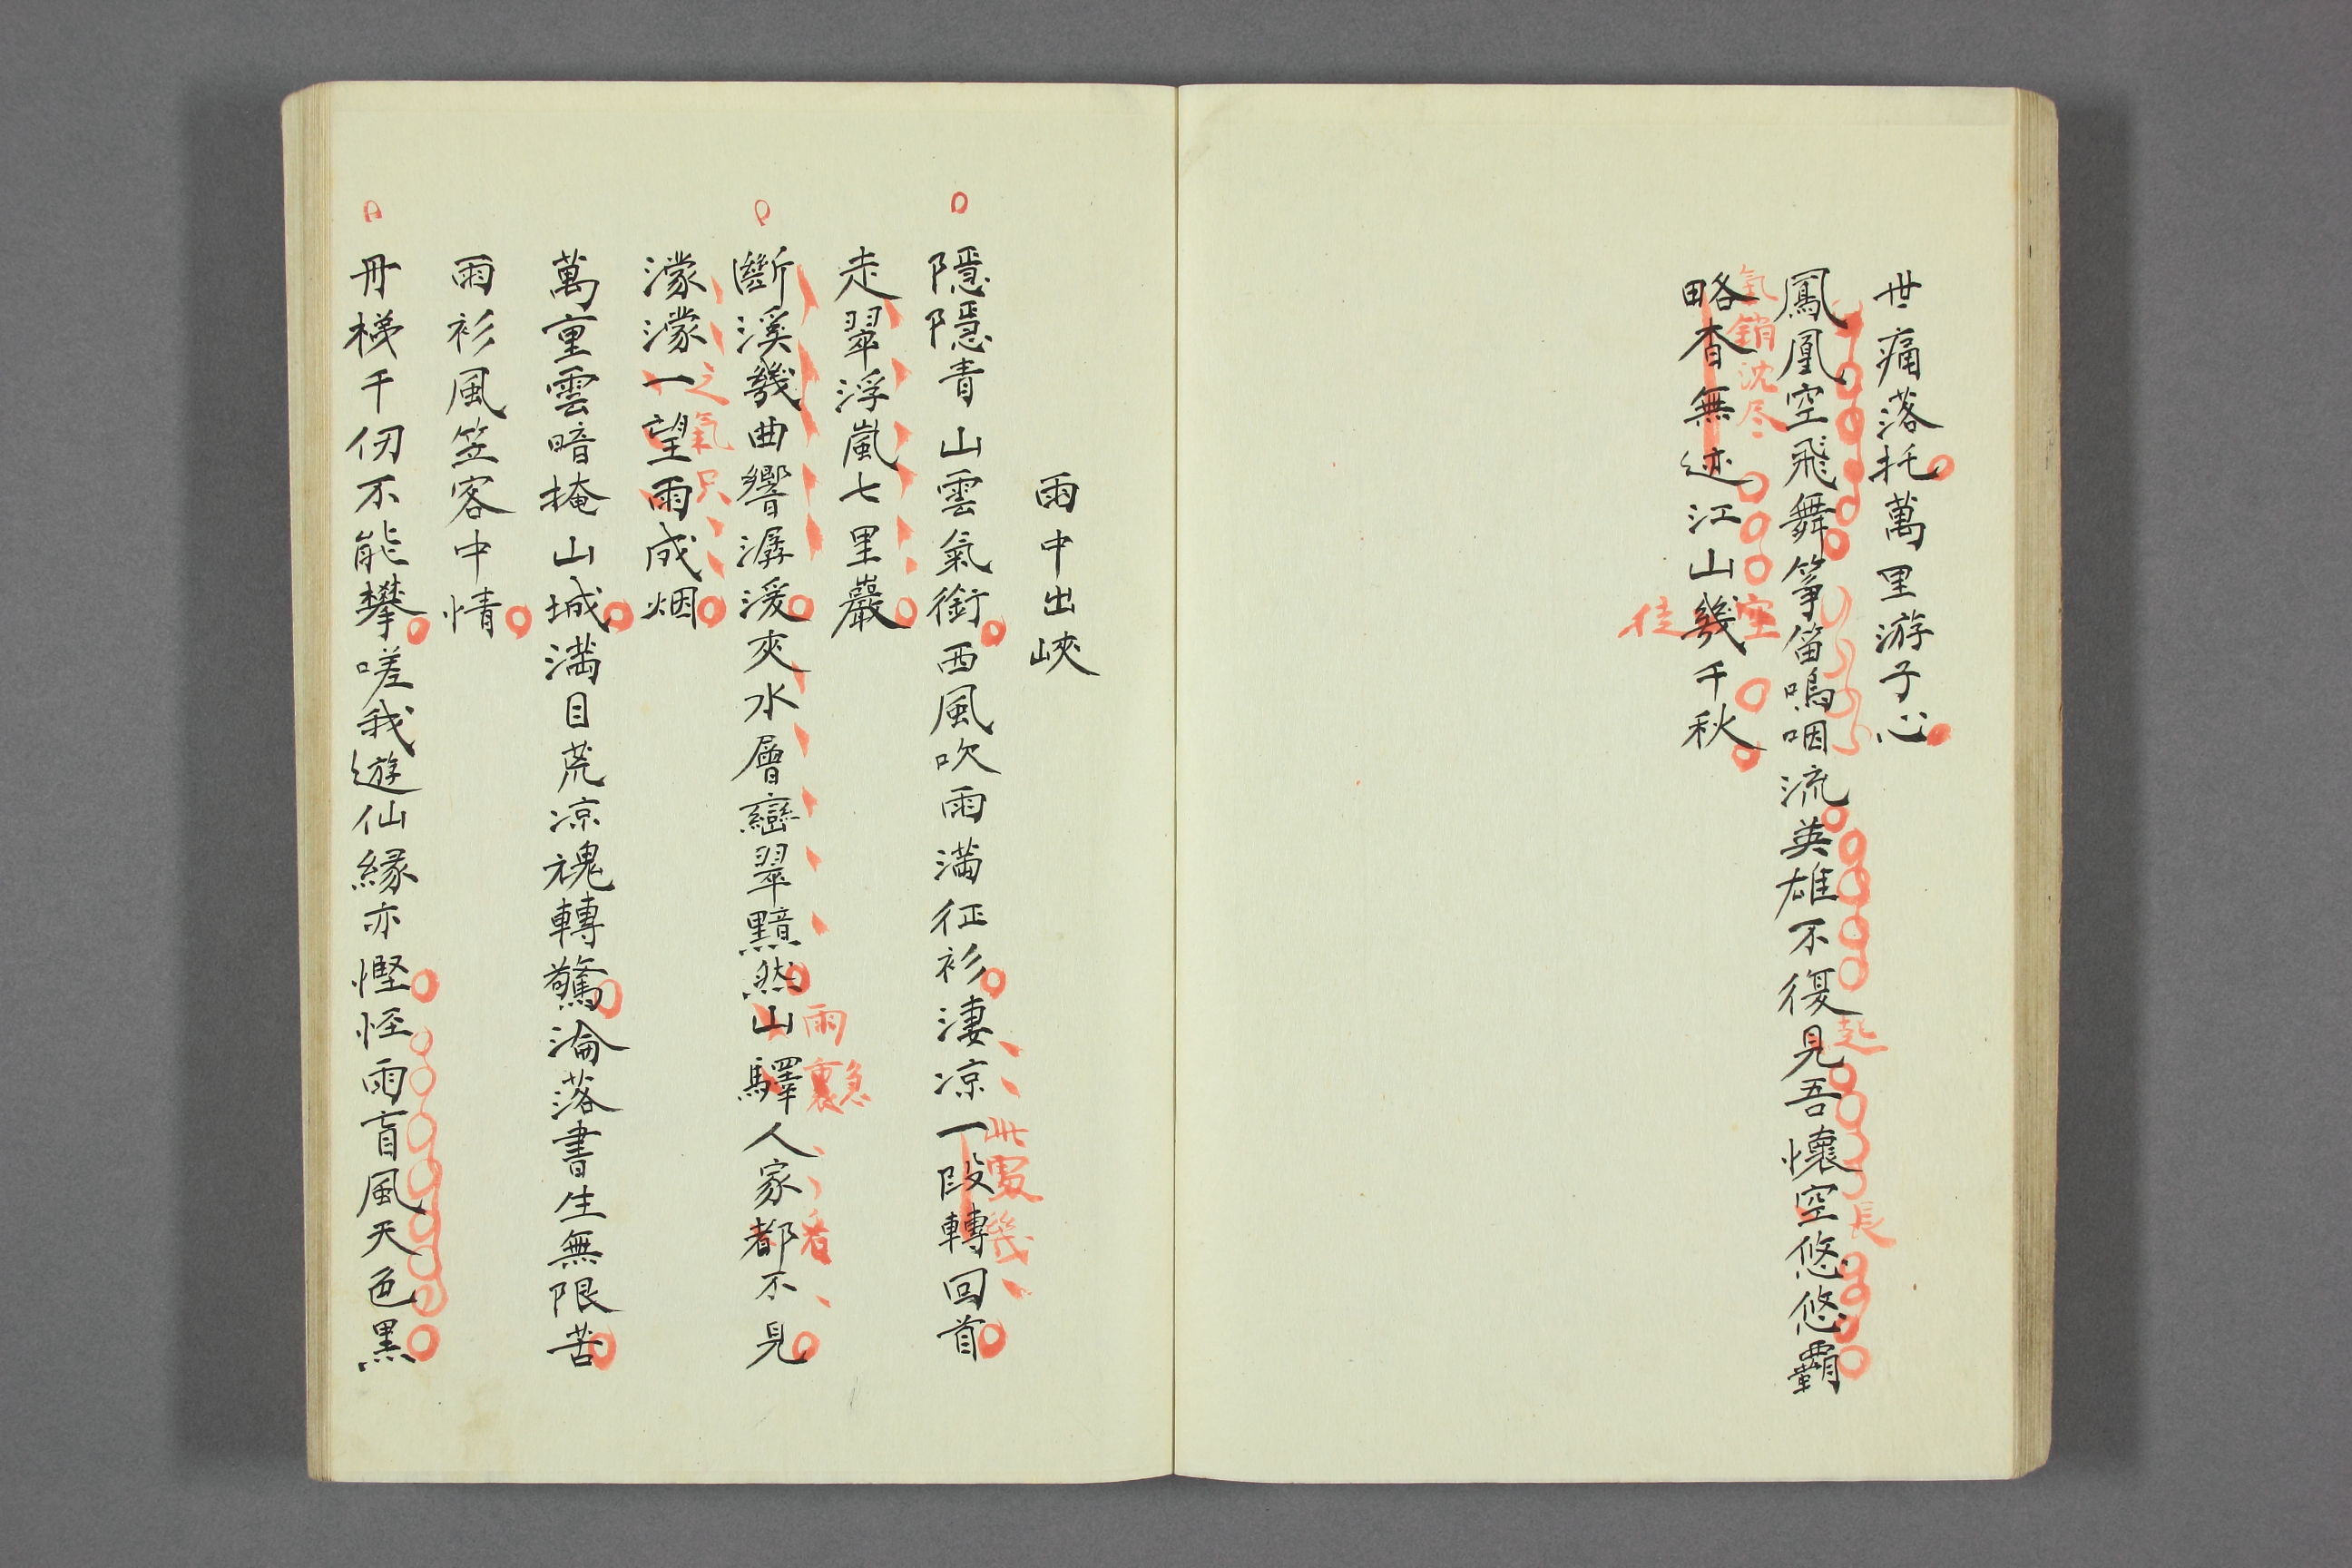 世痛落托萬里游子心
鳳凰空飛舞箏笛嗚咽流英雄不復見吾懷空悠悠霸
起
長
略杳無迹江山幾千秋
氣銷沈尽
空
佳
雨中出峽
隱隱青山雲氣銜西風吹雨滿征衫淒涼一段轉回首
此景幾
走翠浮嵐七里巖
斷溪幾曲響潺湲夾水層巒翠黯然山驛人家都不見
雨裏
看
濛濛一望雨成烟
之氣只
萬重雲暗掩山城満目荒凉魂轉驚淪落書生無限苦
雨衫風笠客中情
丹梯千仞不能攀嗟我遊仙縁亦慳怪雨盲風天色黑